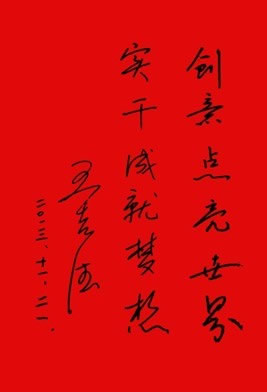 创意点亮世界
实干成就梦想
王志法
二〇一三、十一、二一、